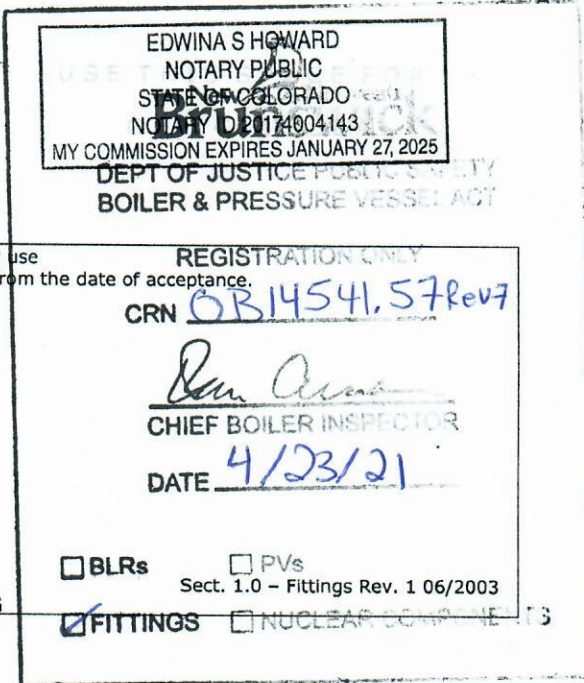 EDWINA S HOWARD
NOTARY PUBLIC
STATE OF COLORADO
New
NOTARY ID 20174004143
Brunswick
MY COMMISSION EXPIRES JANUARY 27, 2025
DEPT OF JUSTICE PUBLIC SAFETY
BOILER & PRESSURE VESSEL ACT
use
REGISTRATION ONLY
om the date of acceptance.
CRN 0B14541.57Rev7
CHIEF BOILER INSPECTOR
DATE 4/23/21
BLRs PVs
Sect. 1.0 – Fittings Rev. 1 06/2003
FITTINGS NUCLEAR COMPONENTS